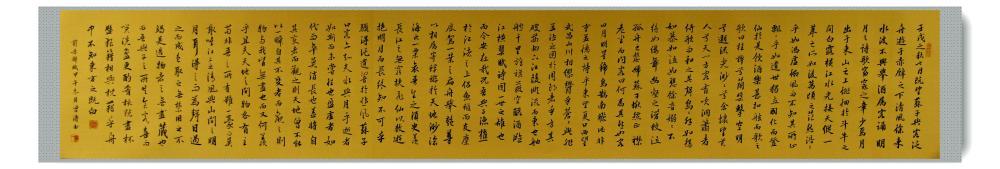 壬戌之秋七月既望蘇子與客泛
舟遊於赤壁之下清風徐來
水波不興舉酒屬客誦明
月之詩歌窈窕之章少焉月
出於東山之上徘徊於斗牛之
間白露橫江水光接天縱一
葦之所如凌萬頃之茫然浩浩
乎如馮虛御風而不知其所止
飄飄乎如遺世獨立羽化而登
仙於是飲酒樂甚扣舷而歌之
歌曰桂棹兮蘭槳擊空明
兮溯流光渺渺兮予懷望美
人兮天一方客有吹洞簫者
倚歌而和之其聲嗚嗚然如怨
如慕如泣如訴餘音嫋嫋不
絕如縷舞幽壑之潛蛟泣
孤舟之嫠婦蘇子愀然正襟
危坐而問客曰何為其然也客
曰月明星稀烏鵲南飛此非
曹孟德之詩乎西望夏口東望
武昌山川相繆鬱乎蒼蒼此非
孟德之困於周郎者乎方其
破荊州下江陵順流而東也舳
艫千里旌旗蔽空釃酒臨
江橫槊賦詩固一世之雄也
而今安在哉況吾與子漁樵
於江渚之上侶魚蝦而友麋
鹿駕一葉之扁舟舉匏尊
以相屬寄蜉蝣於天地渺滄
海之一粟哀吾生之須臾羨
長江之無窮挾飛仙以遨遊
抱明月而長終知不可乎
驟得託遺響於悲風蘇子
曰客亦知夫水與月乎逝者
如斯而未嘗往也盈虛者如
代而卒莫消長也蓋將自
其變者而觀之則天地曾不能
以一瞬自其不變者而觀之則
物與我皆無盡也而又何羨
乎且夫天地之間物各有主
苟非吾之所有雖一毫而莫
取惟江上之清風與山間之明
月耳得之而為聲目遇
之而成色取之無禁用之不
竭是造物者之無盡藏也
而吾與子之所共食客喜而
笑洗盞更酌肴核既盡杯
盤狼藉相與枕藉乎舟
中不知東方之既白
前赤壁賦